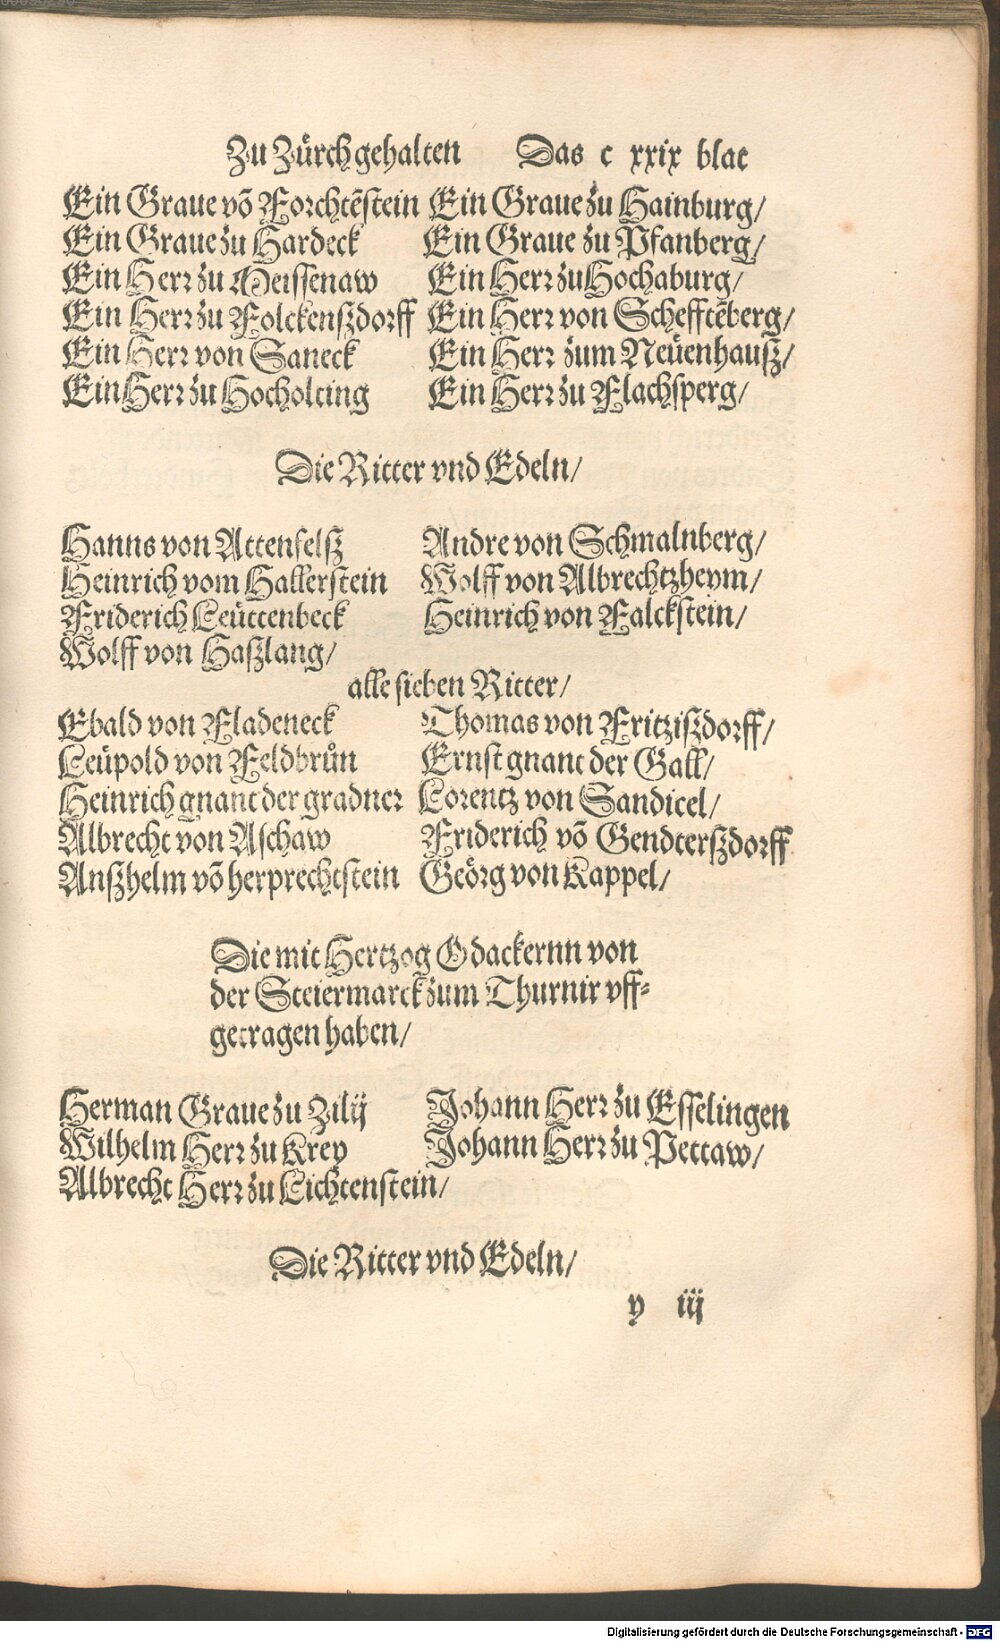 Zu Zürch gehalten Das c xxix blat
Ein Graue võ Forchtẽstein Ein Graue zu Hainburg/
Ein Graue zu Hardeck Ein Graue zu Pfanberg/
Ein Herr zu Meissenaw Ein Herr zu Hochaburg/
Ein Herr zu Folckenßdorff Ein Herr von Schefftẽberg/
Ein Herr von Saneck Ein Herr zum Neüenhauß/
Ein Herr zu Hocholting Ein Herr zu Flachsperg/
Die Ritter vnd Edeln/
Hanns von Attenfelß Andre von Schmalnberg/
Heinrich vom Hallerstein Wolff von Albrechtzheym/
Friderich Leüttenbeck Heinrich von Falckstein/
Wolff von Haßlang/
alle sieben Ritter/
Ebald von Fladeneck Thomas von Fritzißdorff/
Leüpold von Feldbrůn Ernst gnant der Gall/
Heinrich gnant der gradner Lorentz von Sandicel/
Albrecht von Aschaw Friderich võ Gendterßdorff
Anßhelm võ herprechtstein Geörg von Kappel/
Die mit Hertzog Odackernn von
der Steiermarck zum Thurnir vff-
getragen haben/
Herman Graue zu Zilij Johann Herr zu Esselingen
Wilhelm Herr zu Krey Johann Herr zu Pettaw/
Albrecht Herr zu Lichtenstein/
Die Ritter vnd Edeln/
y iij
Digitalisierung gefördert durch die Deutsche Forschungsgemeinschaft - DFG